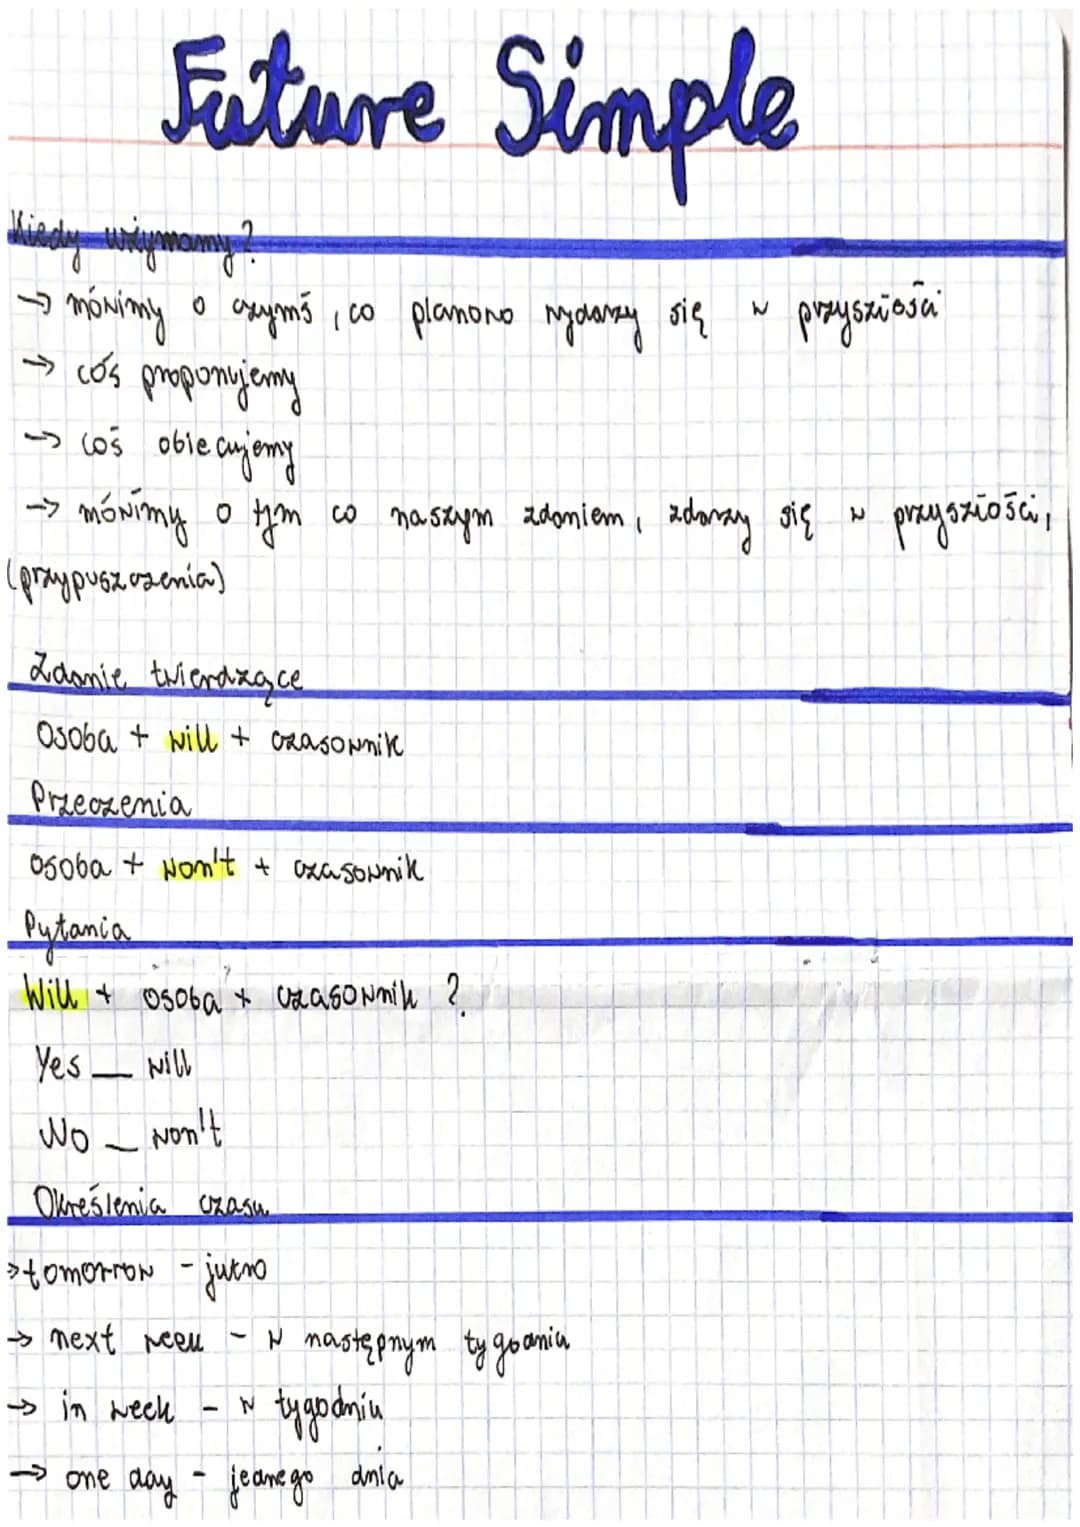 Future Simple
Kiedy używamy?
→ mówimy o czymś, co planowo wydarzy się w przyszłości
→ coś proponujemy
→ coś obiecujemy
→ mówimy o tym co naszym zdaniem, zdarzy się w przyszłości,
(przypuszczenia)
Zdanie twierdzące
Osoba + will + czasownik
Przeczenia
osoba + won't + czasownik
Pytania
Will + osoba + czasownik ?
Yes __ will
No __ won't
Określenia czasu
→ tomorrow - jutro
→ next week - w następnym tygodniu
→ in week - w tygodniu
→ one day - jednego dnia